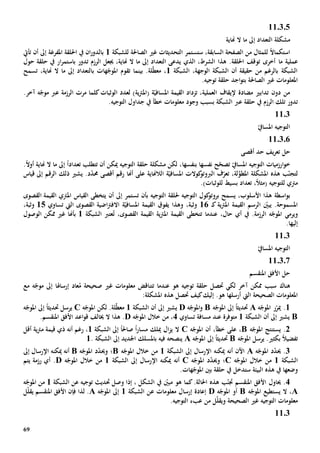 11.3.5
مشكلة التعداد إلى ما لا نهاية
استكمالاً للمثال من الصفحة السابقة، ستستمر التحديثات غير الصالحة للشبكة 1 بالدوران في الحلقة المفرغة إلى أن تأتي
عملية ما أخرى توقف الحلقة. هذا الشرط، الذي يدعى التعداد إلى ما لا نهاية، يجعل الرزم تدور باستمرار في حلقة حول
الشبكة بالرغم من حقيقة أن الشبكة الوجهة، الشبكة 1، معطّلة. بينما تقوم الموجّهات بالتعداد إلى ما لا نهاية، تسمح
المعلومات غير الصالحة بتواجد حلقة توجيه.
من دون تدابير مضادة لإيقاف العملية، تزداد القيمة المسافيّة (المترية) لعدد الوثبات كلما مرت الرزمة عبر موجّه آخر.
تدور تلك الرزم في حلقة عبر الشبكة بسبب وجود معلومات خطأ في جداول التوجيه.
11.3
التوجيه المسافيّ
11.3.6
حل تعريف حد أقصى
خوارزميات التوجيه المسافيّ تصحّح نفسها بنفسها، لكن مشكلة حلقة التوجيه يمكن أن تتطلب تعداداً إلى ما لا نهاية أولاً.
لتجنّب هذه المشكلة المطوّلة، تعرّف البروتوكولات المسافيّة اللانهاية على أنها رقم أقصى محدّد. يشير ذلك الرقم إلى قياس
متري للتوجيه (مثلاً، تعداد بسيط للوثبات).
بواسطة هذا الأسلوب، يسمح بروتوكول التوجيه لحلقة التوجيه بأن تستمر إلى أن يتخطى القياس المتري القيمة القصوى
المسموحة. يبيّن الرسم القيمة المترية كـ 16 وثبة، وهذا يفوق القيمة المسافيّة الافتراضية القصوى التي تساوي 15 وثبة،
ويرمي الموجّه الرزمة. في أي حال، عندما تتخطى القيمة المترية القيمة القصوى، تُعتبر الشبكة 1 بأنها غير ممكن الوصول
إليها.
11.3
التوجيه المسافيّ
11.3.7
حل الأفق المنقسم
هناك سبب ممكن آخر لكي تحصل حلقة توجيه هو عندما تتناقض معلومات غير صحيحة مُعاد إرسالها إلى موجّه مع
المعلومات الصحيحة التي أرسلها هو. إليك كيف تحصل هذه المشكلة:
1. يمرّر الموجّه A تحديثاً إلى الموجّه B والموجّه D يشير إلى أن الشبكة 1 معطّلة. لكن الموجّه C يرسل تحديثاً إلى الموجّه
B يشير إلى أن الشبكة 1 متوفرة عند مسافة تساوي 4، من خلال الموجّه D. هذا لا يخالف قواعد الأفق المنقسم.
2. يستنتج الموجّه B، على خطأ، أن الموجّه C لا يزال يملك مساراً صالحاً إلى الشبكة 1، رغم أنه ذي قيمة مترية أقل
تفضيلاً بكثير. يرسل الموجّه B تحديثاً إلى الموجّه A ينصحه فيه بالمسلك الجديد إلى الشبكة 1.
3. يحدّد الموجّه A الآن أنه يمكنه الإرسال إلى الشبكة 1 من خلال الموجّه B؛ ويحدّد الموجّه B أنه يمكنه الإرسال إلى
الشبكة 1 من خلال الموجّه C؛ ويحدّد الموجّه C أنه يمكنه الإرسال إلى الشبكة 1 من خلال الموجّه D. أي رزمة يتم
وضعها في هذه البيئة ستدخل في حلقة بين الموجّهات.
4. يحاول الأفق المنقسم تجنّب هذه الحالة. كما هو مبيّن في الشكل ، إذا وصل تحديث توجيه عن الشبكة 1 من الموجّه
A، لا يستطيع الموجّه B أو الموجّه D إعادة إرسال معلومات عن الشبكة 1 إلى الموجّه A. لذا فإن الأفق المنقسم يقلّل
معلومات التوجيه غير الصحيحة ويقلّل من عبء التوجيه.
11.3
69